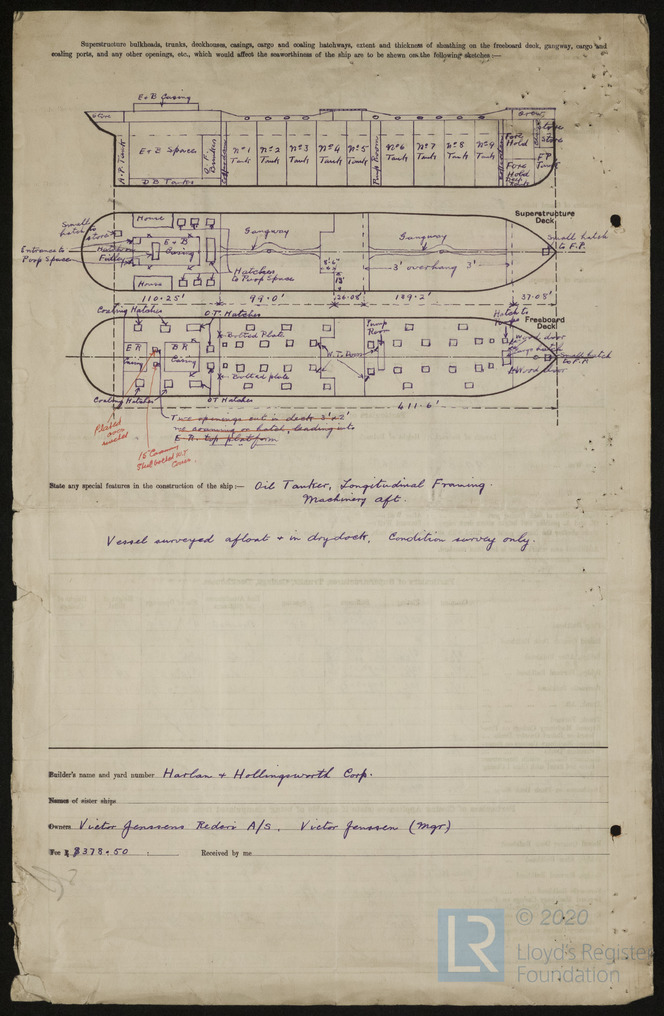 Superstructure bulkheads, trunks, deckhouses, casings, cargo and coaling hatchways, extent and thickness of sheathing on the freeboard deck, gangway, cargo and
coaling ports, and any other openings, etc., which would affect the seaworthiness of the ship are to be shewn on the following sketches:—
E+B Casing
Store
Crew
A.P. Tank
E+B Space
O.F. Bunkers
Cofferdam
No 1 Tank
No 2 Tank
No 3 Tank
No 4 Tank
No 5 Tank
Pump Room
No 6 Tank
No 7 Tank
No 8 Tank
No 9 Tank
Cofferdam
Fore Hold
Store
Fore Hold
Deep Tank
F.P. Tank
D B Tanks
Superstructure
Deck
Small hatch to store
House
Entrance to Poop Space
Fidley
E+B Casing
House
Gangway
Gangway
Small hatch to F.P.
Hatches to Poop Space
3' overhang 3'
110.25'
99.0'
26.08'
139.2'
37.08'
Coaling Hatches
O.T. Hatches
Freeboard
Deck
Bolted Plate
Pump Room
Hatch to
Wood door
E R Casing
B R Casing
W.T. Doors
Cargo hatch
Small hatch to F.P.
Bolted plate
Wood door
Coaling Hatches
OT Hatches
411.6'
Two openings cut in deck 3' x 2'
no coaming or hatch, leading into
E. R. top platform
Plated over
State any special features in the construction of the ship:— Oil Tanker, Longitudinal Framing.
Machinery aft.
Vessel surveyed afloat + in drydock. Condition survey only.
Builder's name and yard number Harlan + Hollingsworth Corp.
Names of sister ships
Owners Victor Jenssens Rederi A/S. Victor Jenssen (Mgr)
Fee £ $378.50 : Received by me
LR
© 2020
Lloyd's Register
Foundation